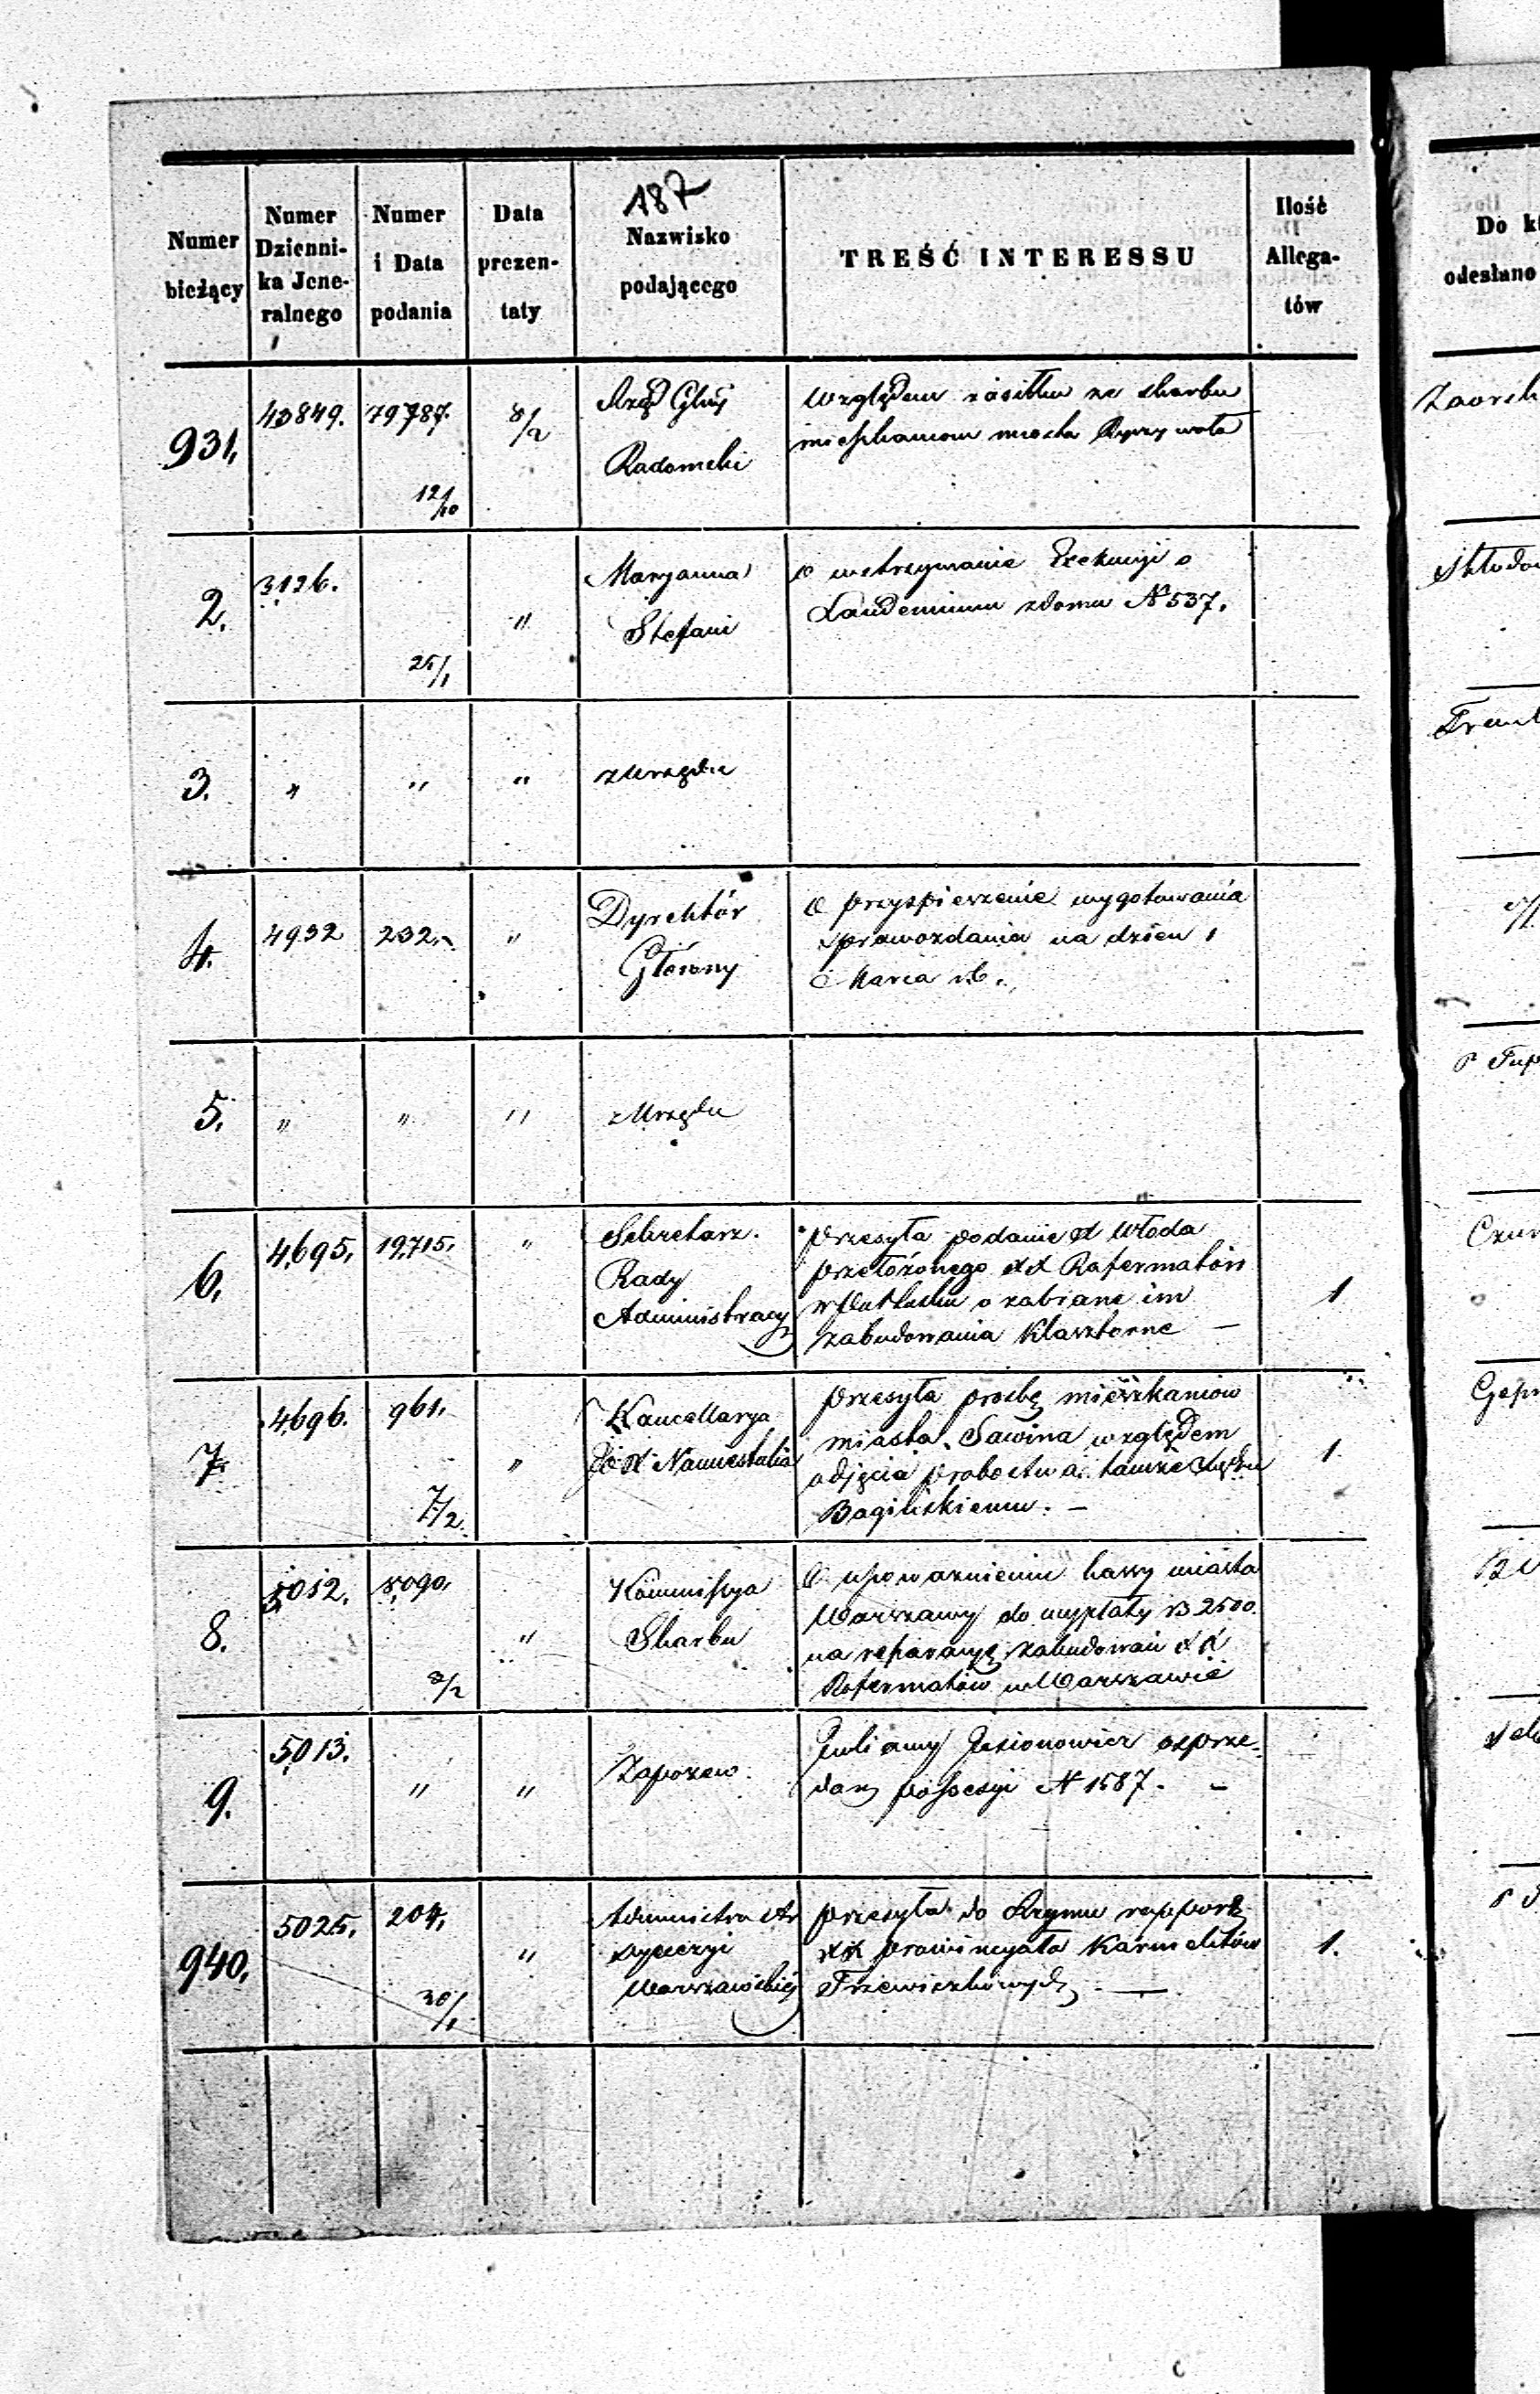 187
Numer bieżący
Numer Dzienni-ka Jene-ralnego
Numer i Data podania
Data prezen-taty
Nazwisko podającego
TREŚĆ INTERESSU
Ilość Allega-tów
Do k
odesłano
931. 43849. 79787. 12/10 8/2
Rząd Gbny
Radomski
Względem zasiłku ze skarbu
mieszkańcom miasta Ryczywoła
2. 3126. 25/1 "
Maryanna
Stefani
o wstrzymanie Exekucyi o
Laudemium z domu N 537.
3. " " " z Urzędu
4. 4932 232. "
Dyrektór
Główny
o przyspieszenie wygotowania
sprawozdania na dzień 1
Marca r.b.
5. " " " z Urzędu
6. 4695. 19715. "
Sekretarz
Rady
Administracy
przesyła podanie X Włoda
przełożonego XX Reformatów
w Pułtusku o zabrane im
zabudowania Klasztorne —
1
7. 4696. 961. 7/2 "
Kancellarya
JOX Namiestnika
przesyła prośbę mieszkańców
miasta Sawina względem
odjęcia probostwa tamże Xiędzu
Bagińskiemu. —
1.
8. 5012. 5090. 8/2 "
Kommissya
Skarbu
O upoważnieniu kassy miasta
Warszawy do wypłaty 2500.
na reparacyę zabudowań XX
Reformatów w Warszawie
9. 5013. " "
Zapozew.
Julianny Jezionowicz o sprze-
daż possesyi N 1587. —
940. 5025. 204. 30/1 "
Administrator
dyecezyi
Warszawskiej
przesyła do Rzymu rapport
XX prowincyała Karmelitów
Trzewiczkowych —
1.